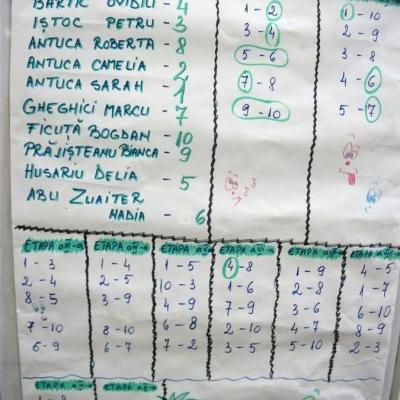 BARTIC OVIDIU - 4
IȘTOC PETRU - 3
ANTUCA ROBERTA - 8
ANTUCA CAMELIA - 2
ANTUCA SARAH - 1
GHEGHICI MARCU - 7
FICUȚĂ BOGDAN - 10
PRĂJIȘTEANU BIANCA - 9
HUSARIU DELIA - 5
ABU ZUAITER
NADIA - 6
1 - 2
3 - 4
5 - 6
7 - 8
9 - 10
1 - 10
2 - 9
3 - 8
4 - 6
5 - 7
ETAPA a III-a
1 - 3
2 - 4
8 - 5
7 - 10
6 - 9
ETAPA a IV-a
1 - 4
2 - 5
3 - 9
8 - 10
6 - 7
ETAPA a V-a
1 - 5
10 - 3
4 - 9
6 - 8
7 - 2
ETAPA a VI-a
4 - 8
1 - 6
7 - 9
2 - 10
3 - 5
ETAPA a VII-a
1 - 9
2 - 8
3 - 6
4 - 7
5 - 10
ETAPA a VIII-a
4 - 5
1 - 7
6 - 10
8 - 9
2 - 3
ETAPA
ETAPA
1 - 8